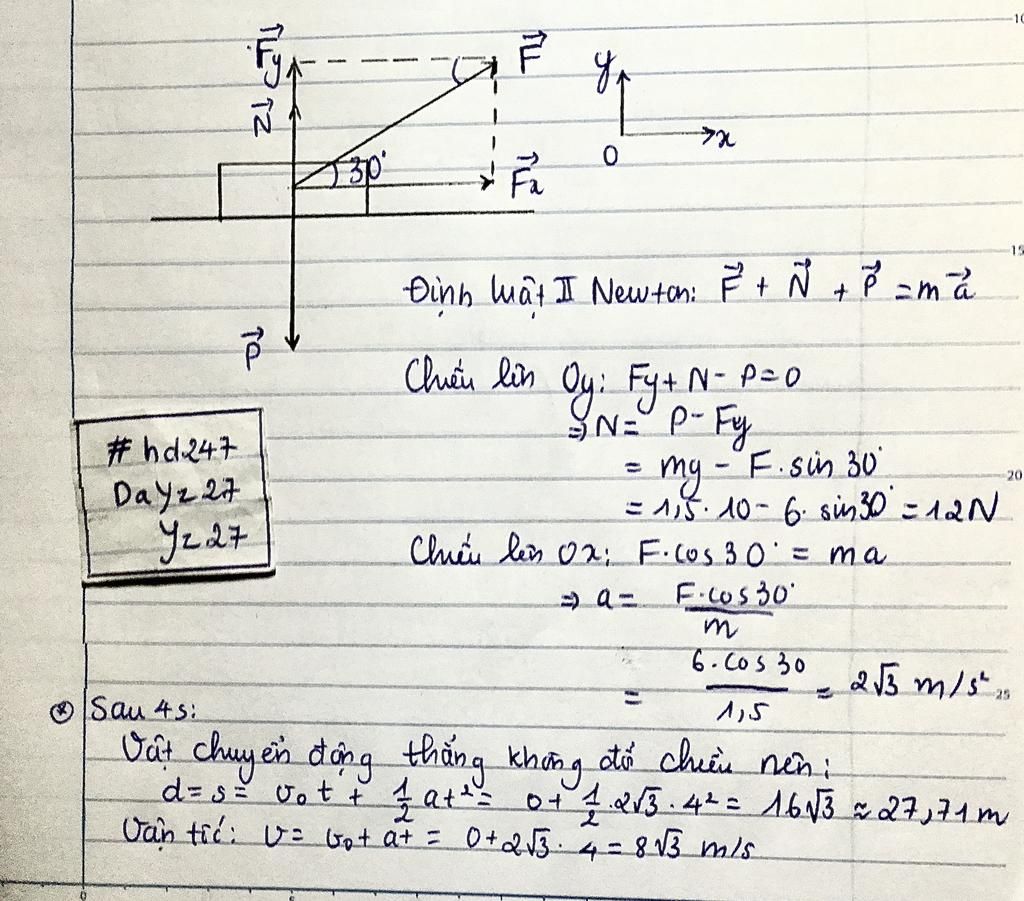 10
F⃗y
F⃗
N⃗
30°
F⃗x
P⃗
y
x
O
15
Định luật II Newton: F⃗ + N⃗ + P⃗ = m a⃗
Chiếu lên Oy: Fy + N - P = 0
⇒ N = P - Fy
= mg - F. sin 30°
= 1,5. 10 - 6. sin30° = 12N
20
Chiếu lên Ox: F. cos30° = ma
⇒ a = F. cos30° / m
= 6. cos 30 / 1,5 = 2√3 m/s²
25
#hd247
DaYz27
Yz27
* Sau 4s:
Vật chuyển động thẳng không đổi chiều nên:
d = s = v₀t + 1/2 at² = 0 + 1/2 . 2√3 . 4² = 16√3 ≈ 27,71 m
Vận tốc: v = v₀ + at = 0 + 2√3 . 4 = 8√3 m/s
0